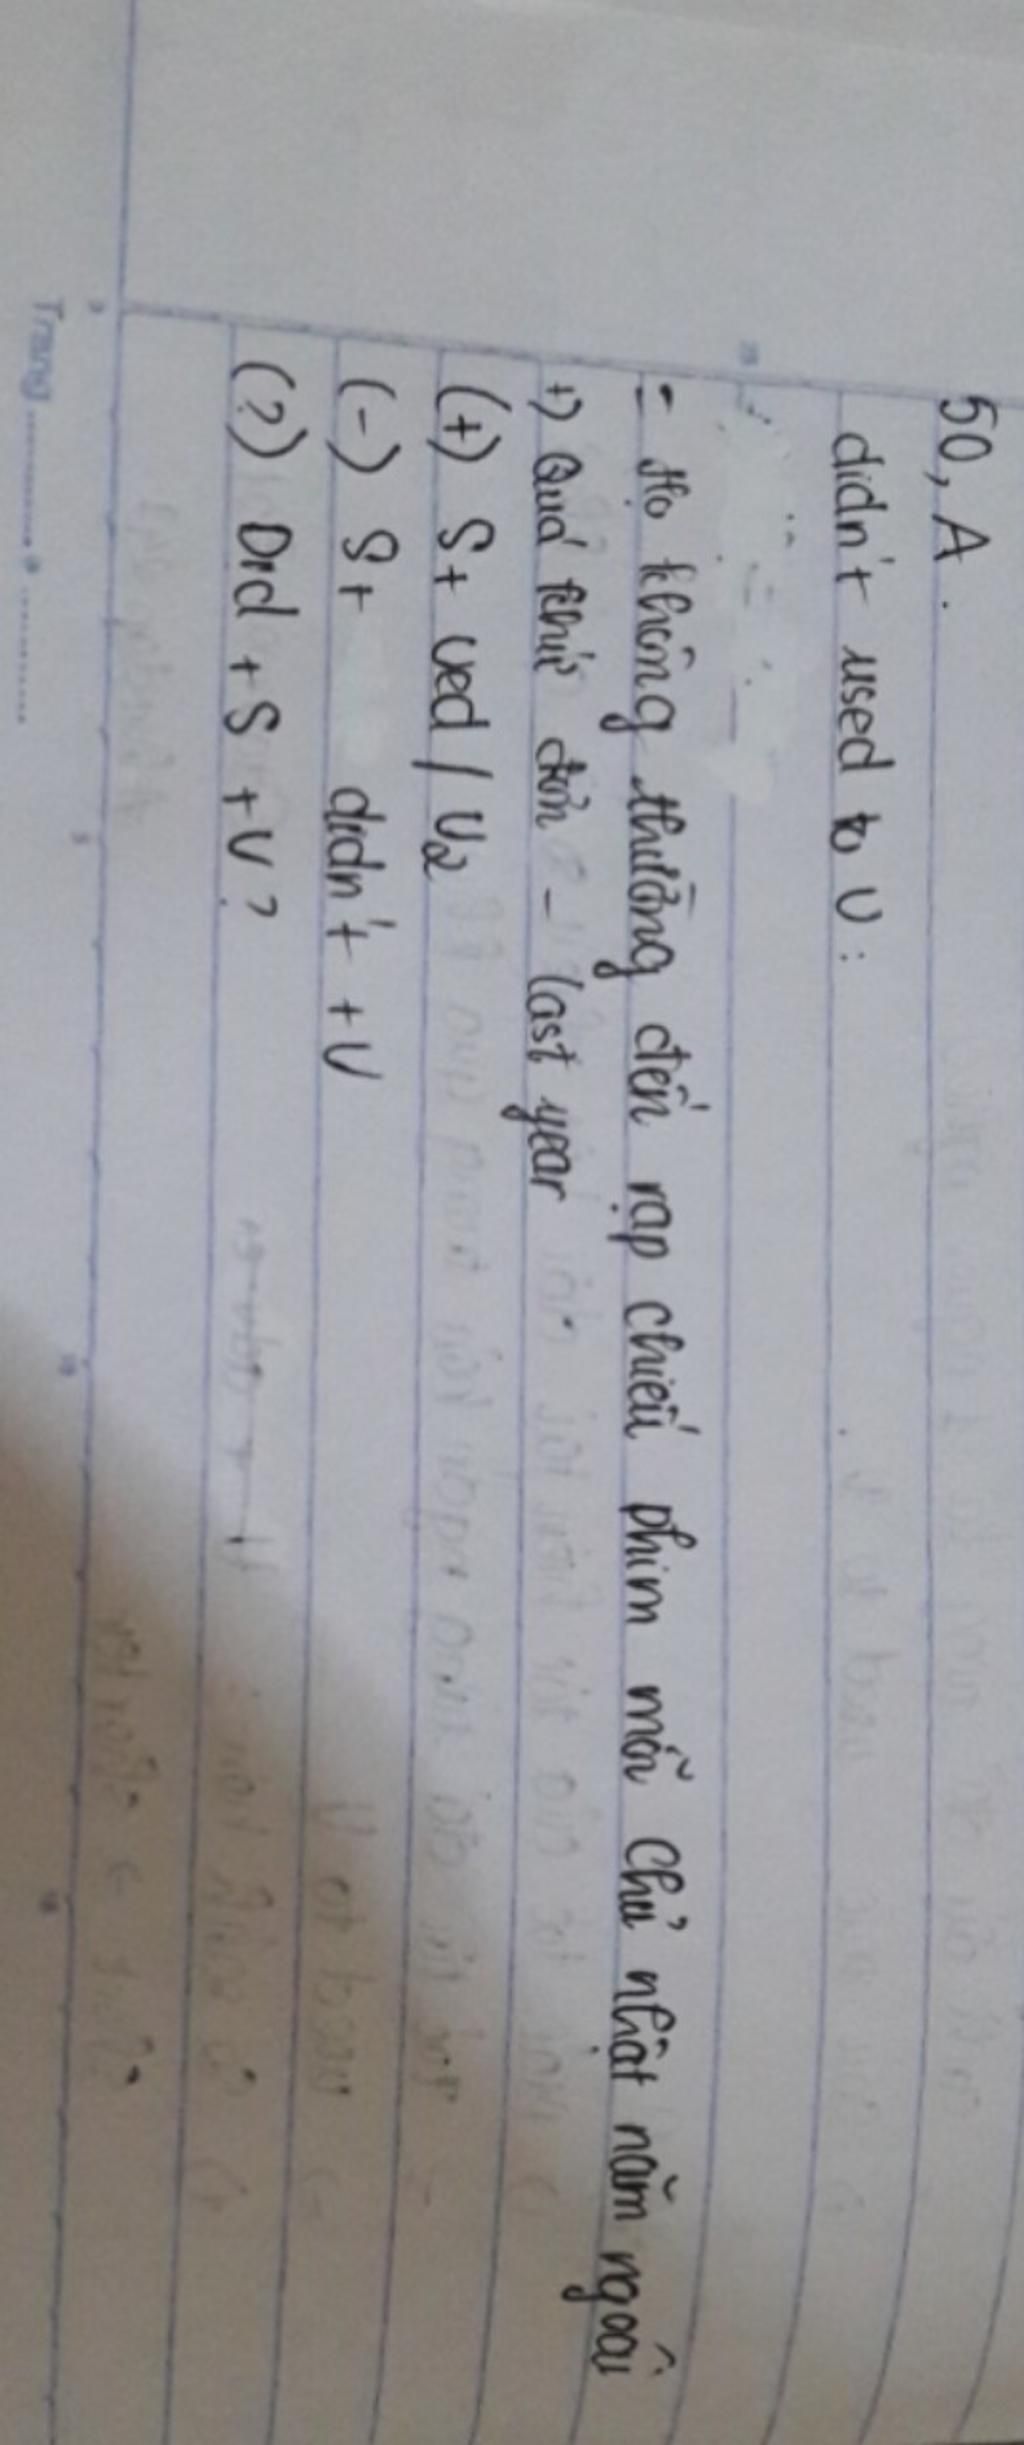 50, A.
didn't used to V:
- Họ không thường đến rạp chiếu phim mỗi chủ nhật năm ngoái
+) Quá khứ đơn - last year
(+) S + Ved / V2
(-) S + didn't + V
(?) Did + S + V?
Trang